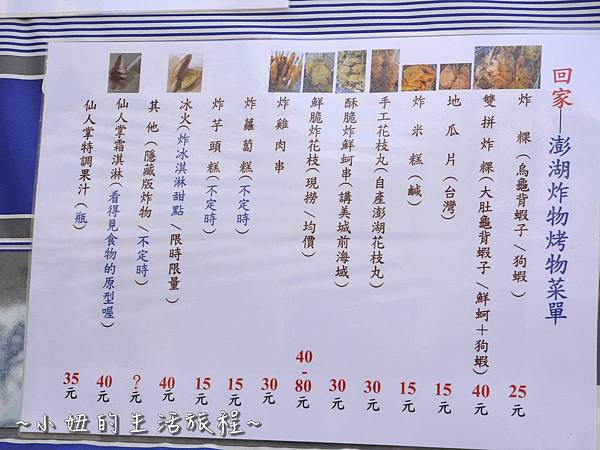 回家—澎湖炸物烤物菜單
炸粿(烏龜背蝦子/狗蝦) 25元
雙拼炸粿(大肚龜背蝦子/鮮蚵+狗蝦) 40元
地瓜片(台灣) 15元
炸米糕(鹹) 15元
手工花枝丸(自產澎湖花枝丸) 30元
酥脆炸鮮蚵串(講美城前海域) 30元
鮮脆炸花枝(現撈/均價) 40-80元
炸雞肉串 30元
炸蘿蔔糕(不定時) 15元
炸芋頭糕(不定時) 15元
冰火(炸冰淇淋甜點/限時限量) 40元
其他(隱藏版炸物/不定時) ?元
仙人掌霜淇淋(看得見食物的原型喔) 40元
仙人掌特調果汁(瓶) 35元
~小妞的生活旅程~